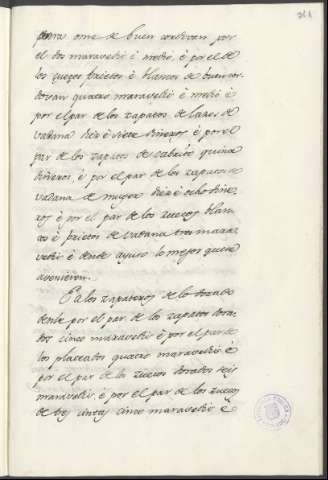 para ome de buen cordovan por
el dos maravedis è medio, è por el de
los zuecos prietos è blancos de buen cor
dovan quatro maravedis è medio è
por el par de los zapatos de lazos de
vadana diez è siete dineros è por el
par de los zapatos de cabrito quince
dineros, è por el par de los zapatos de
vadana de muger diez è ocho dine
ros è por el par de los zuecos blan
cos è prietos de vadana tres mara
vedis è dende ayuso lo mejor que se
avinieren.
E a los zapateros de lo dorado
denle por el par de los zapatos dora
dos cinco maravedis è por el par de
los plateados quatro maravedis è
por el par de los zuecos dorados seis
maravedis, è por el par de los zuecos
cinco maravedis è